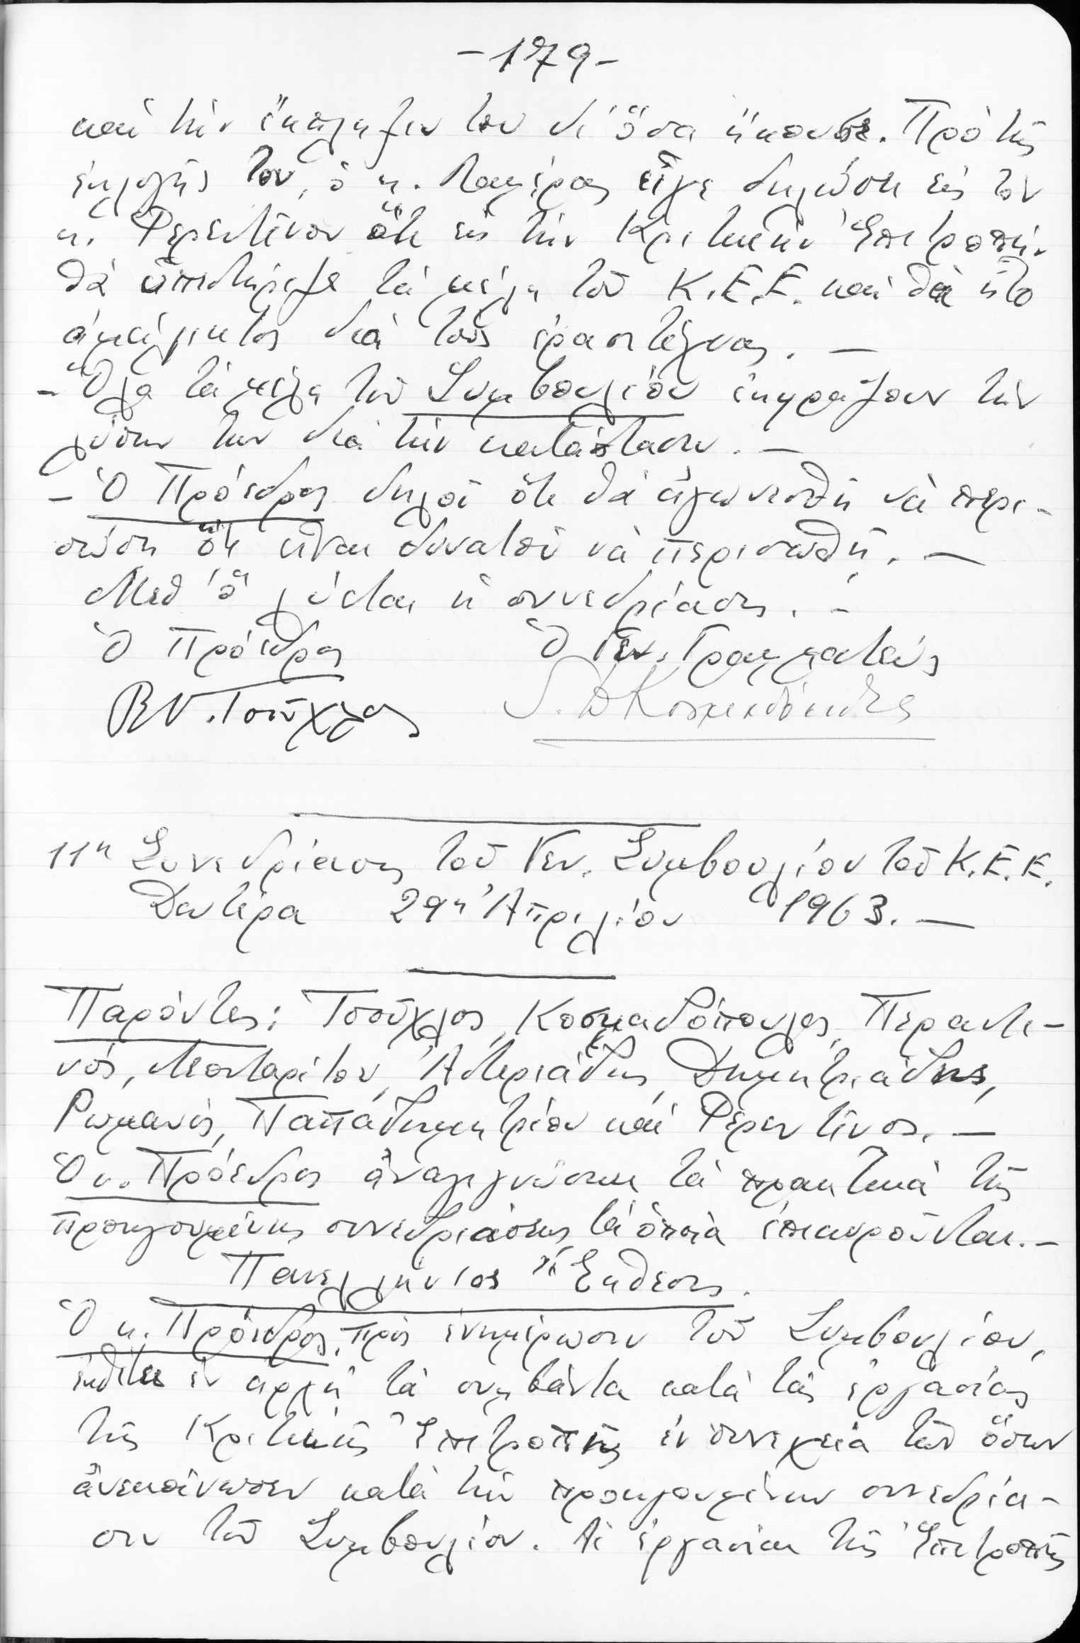 -179-
καί τήν ἔκπληξιν του δι' ὅσα ἤκουσε. Πρό τῆς
ἐκλογῆς του, ὁ κ. εἶχε δηλώση εἰς τόν
κ. Φερεντῖνον ὅτι εἰς τήν Κριτικήν Ἐπιτροπήν
θά ὑπεστήριζε τά μέλη τοῦ Κ.Ε.Ε. καί θά ἦτο
ἀμείλικτος διά τούς ἐρασιτέχνας. —
- Ὅλα τά μέλη τοῦ Συμβουλίου ἐκφράζουν τήν
λύπην των διά τήν κατάστασιν. —
- Ὁ Πρόεδρος δηλοῖ ὅτι θά ἀγωνισθῆ νά περι-
σώση ὅτι εἶναι δυνατόν νά περισωθῆ. —
Μεθ' ὅ λύεται ἡ συνεδρίασις. -
Ὁ Πρόεδρος Ὁ Γεν. Γραμματεύς
Τσοῦχλος
11η Συνεδρίασις τοῦ Γεν. Συμβουλίου τοῦ Κ.Ε.Ε.
Δευτέρα 29η Ἀπριλίου 1963. —
Παρόντες: Τσοῦχλος, Κοσμαδόπουλος, Περαντι-
νός, Μονταρίτου, Ἀστεριάδης, Δημητριάδης,
Ρωμανός, Παπαδημητρίου καί Φερεντῖνος. —
Ὁ κ. Πρόεδρος ἀναγιγνώσκει τά πρακτικά τῆς
προηγουμένης συνεδριάσεως τά ὁποῖα ἐπικυροῦνται. -
Πανελλήνιος Ἔκθεσις.
Ὁ κ. Πρόεδρος, πρός ἐνημέρωσιν τοῦ Συμβουλίου,
ἐκθέτει ἐν ἀρχῆ τά συμβάντα κατά τάς ἐργασίας
τῆς Κριτικῆς Ἐπιτροπῆς ἐν συνεχεία τῶν ὅσων
ἀνεκοίνωσεν κατά τήν προηγουμένην συνεδρία-
σιν τοῦ Συμβουλίου. Αἱ ἐργασίαι τῆς Ἐπιτροπῆς